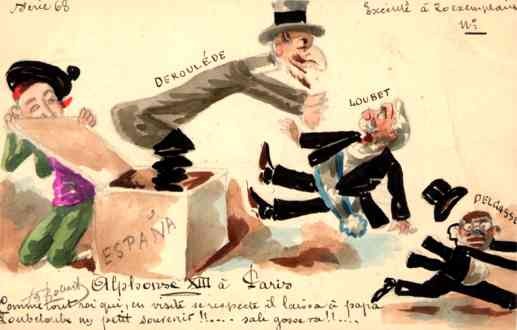 Série 68
Exécuté à 20 exemplaires
No
DEROULÉDE
LOUBET
DELCASSÉ
ESPAÑA
Alphonse XIII à Paris
Comme tout roi qui, en visite se respecte il laissa à papa
Loubeloube un petit souvenir !!.... sale gosse va !!....